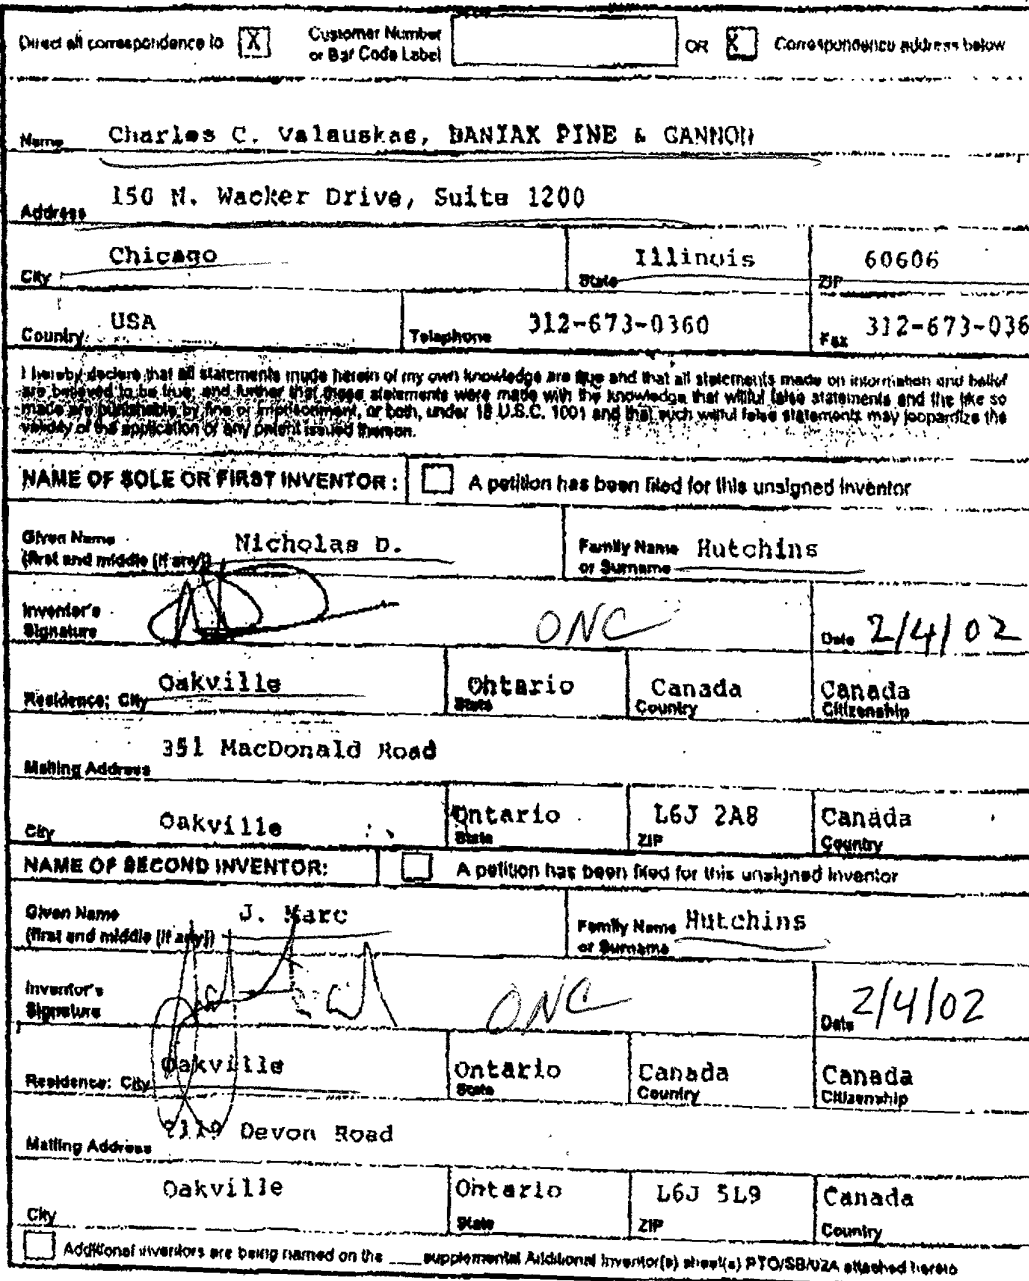 Direct all correspondence to [X] Customer Number or Bar Code Label OR [X] Correspondence address below
Name Charles C. Valauskas, BANIAK PINE & GANNON
Address 150 N. Wacker Drive, Suite 1200
City Chicago State Illinois ZIP 60606
Country USA Telephone 312-673-0360 Fax 312-673-036
I hereby declare that all statements made herein of my own knowledge are true and that all statements made on information and belief
are believed to be true; and further that these statements were made with the knowledge that willful false statements and the like so
made are punishable by fine or imprisonment, or both, under 18 U.S.C. 1001 and that such willful false statements may jeopardize the
validity of the application or any patent issued thereon.
NAME OF SOLE OR FIRST INVENTOR : A petition has been filed for this unsigned inventor
Given Name (first and middle [if any]) Nicholas D. Family Name or Surname Hutchins
Inventor's Signature ONC Date 2/4/02
Residence: City Oakville State Ontario Country Canada Citizenship Canada
Mailing Address 351 MacDonald Road
City Oakville State Ontario ZIP L6J 2A8 Country Canada
NAME OF SECOND INVENTOR: A petition has been filed for this unsigned inventor
Given Name (first and middle [if any]) J. Marc Family Name or Surname Hutchins
Inventor's Signature ONC Date 2/4/02
Residence: City Oakville State Ontario Country Canada Citizenship Canada
Mailing Address Devon Road
City Oakville State Ontario ZIP L6J 5L9 Country Canada
Additional inventors are being named on the ___ supplemental Additional Inventor(s) sheet(s) PTO/SB/02A attached hereto